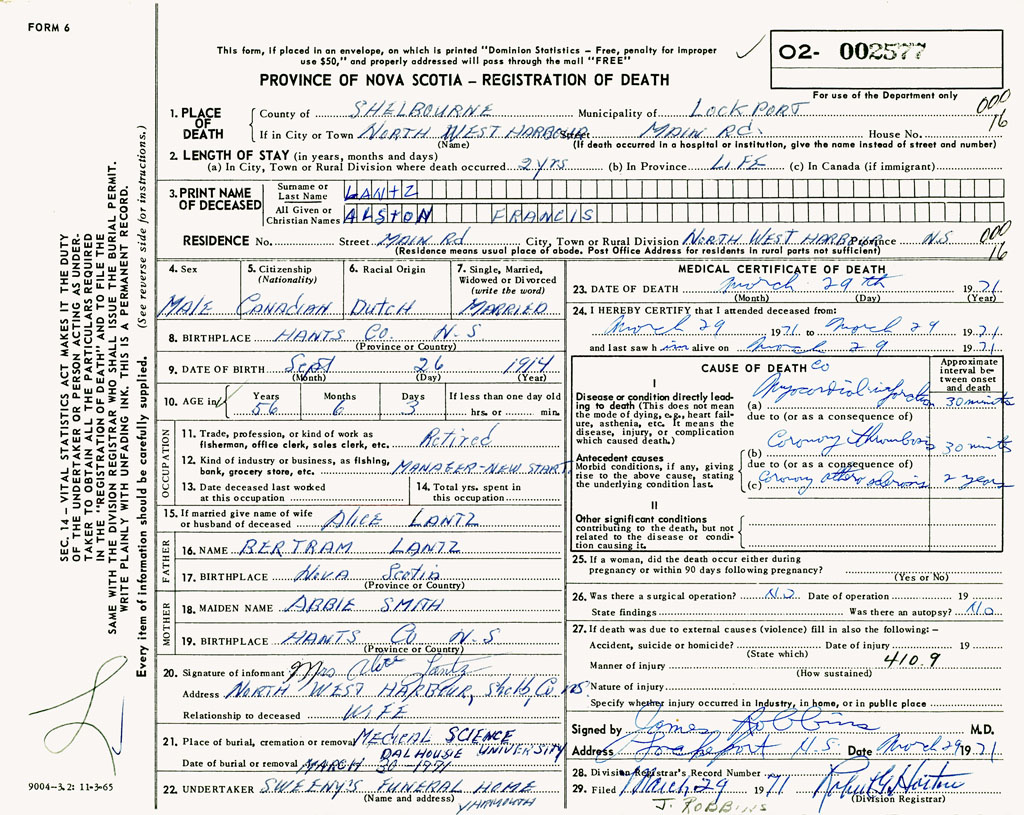 FORM 6
This form, if placed in an envelope, on which is printed "Dominion Statistics – Free, penalty for improper
use $50," and properly addressed will pass through the mail "FREE"
PROVINCE OF NOVA SCOTIA – REGISTRATION OF DEATH
O2- 002577
For use of the Department only
000
16
1. PLACE OF DEATH
County of SHELBOURNE Municipality of LOCKPORT
If in City or Town NORTH WEST HARBOUR Street MAIN RD. House No.
(Name) (If death occurred in a hospital or institution, give the name instead of street and number)
2. LENGTH OF STAY (in years, months and days)
(a) In City, Town or Rural Division where death occurred 2 yrs (b) In Province LIFE (c) In Canada (if immigrant)
3. PRINT NAME OF DECEASED
Surname or Last Name LANTZ
All Given or Christian Names ALSTON FRANCIS
RESIDENCE No. Street MAIN Rd City, Town or Rural Division NORTH WEST HARBOUR Province N.S.
(Residence means usual place of abode. Post Office Address for residents in rural parts not sufficient)
000
16
4. Sex
MALE
5. Citizenship (Nationality)
CANADIAN
6. Racial Origin
DUTCH
7. Single, Married, Widowed or Divorced (write the word)
MARRIED
8. BIRTHPLACE HANTS CO. N.S
(Province or Country)
9. DATE OF BIRTH Sept 26 1914
(Month) (Day) (Year)
10. AGE in Years 56 Months 6 Days 3 If less than one day old hrs. or min.
OCCUPATION
11. Trade, profession, or kind of work as fisherman, office clerk, sales clerk, etc. Retired
12. Kind of industry or business, as fishing, bank, grocery store, etc. MANAGER-NEW START
13. Date deceased last worked at this occupation
14. Total yrs. spent in this occupation
15. If married give name of wife or husband of deceased ALICE LANTZ
FATHER
16. NAME BERTRAM LANTZ
17. BIRTHPLACE NOVA Scotia
(Province or Country)
MOTHER
18. MAIDEN NAME ABBIE SMITH
19. BIRTHPLACE HANTS Co N.S
(Province or Country)
20. Signature of informant Mrs Alice Lantz
Address NORTH WEST HARBOUR, Shelb, Co NS
Relationship to deceased WIFE
21. Place of burial, cremation or removal MEDICAL SCIENCE
DALHOUSE UNIVERSITY
Date of burial or removal MARCH 30-1971
22. UNDERTAKER SWEENY'S FUNERAL HOME
(Name and address) YARMOUTH
MEDICAL CERTIFICATE OF DEATH
23. DATE OF DEATH March 29th 1971
(Month) (Day) (Year)
24. I HEREBY CERTIFY that I attended deceased from:
March 29 1971 to March 29 1971
and last saw him alive on March 29 1971
CAUSE OF DEATH CO
Approximate interval between onset and death
I
Disease or condition directly leading to death (This does not mean the mode of dying, e.g., heart failure, asthenia, etc. It means the disease, injury, or complication which caused death.)
(a) Myocardial infarction 30 minutes
due to (or as a consequence of)
Antecedent causes
Morbid conditions, if any, giving rise to the above cause, stating the underlying condition last.
(b) Coronary thrombosis 30 minutes
due to (or as a consequence of)
(c) Coronary 2 years
II
Other significant conditions
contributing to the death, but not related to the disease or condition causing it.
25. If a woman, did the death occur either during
pregnancy or within 90 days following pregnancy?
(Yes or No)
26. Was there a surgical operation? NO Date of operation 19
State findings Was there an autopsy? NO
27. If death was due to external causes (violence) fill in also the following: –
Accident, suicide or homicide? Date of injury 19
(State which)
Manner of injury 410.9
(How sustained)
Nature of injury
Specify whether injury occurred in Industry, in home, or in public place
Signed by James Robbins M.D.
Address Lockeport N.S. Date March 29 1971
28. Division Registrar's Record Number
29. Filed March 29 1971
(Division Registrar)
J. ROBBINS
SEC. 14 – VITAL STATISTICS ACT MAKES IT THE DUTY
OF THE UNDERTAKER OR PERSON ACTING AS UNDER-
TAKER TO OBTAIN ALL THE PARTICULARS REQUIRED
IN THE "REGISTRATION OF DEATH" AND TO FILE THE
SAME WITH THE DIVISION REGISTRAR WHO SHALL ISSUE THE BURIAL PERMIT.
WRITE PLAINLY WITH UNFADING INK. THIS IS A PERMANENT RECORD.
Every item of information should be carefully supplied. (See reverse side for instructions.)
9004–3.2: 11-3-65